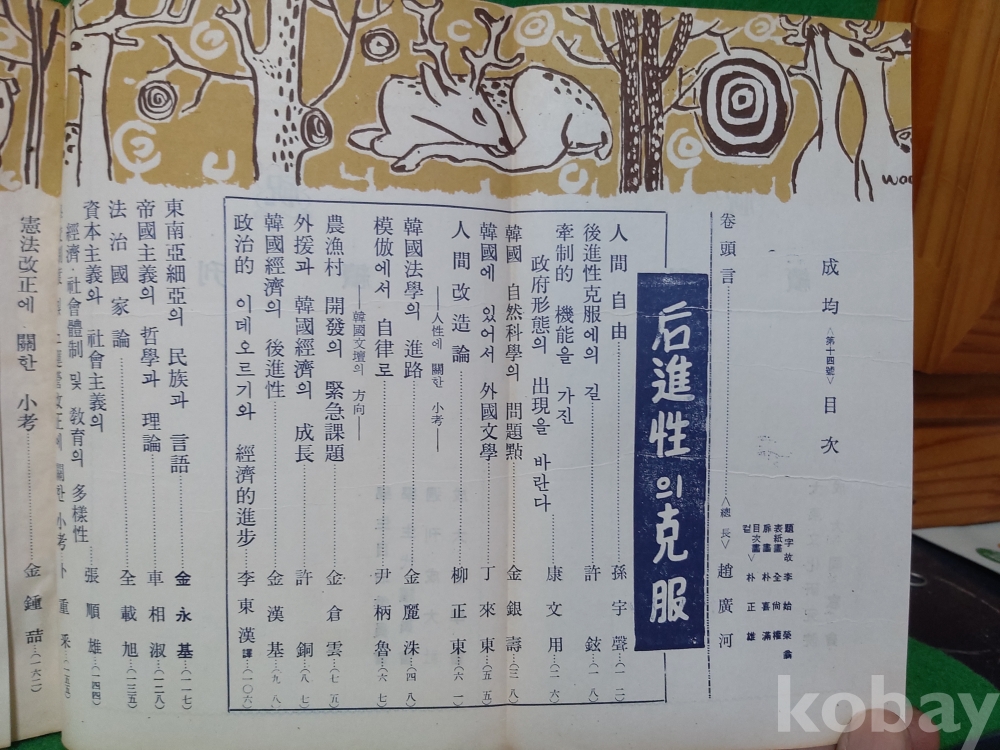 成均 <第十四號> 目次
題字 故 李始榮 翁
表紙畵 全尚權
扉畵 朴喜滿
目次畵
컽 > 朴正雄
卷頭言…………<總長> 趙廣河
后進性의 克服
人間自由………孫宇聲…(一二)
後進性克服에의 길………許鉉…(一八)
牽制的 機能을 가진
政府形態의 出現을 바란다………康文用…(二六)
韓國 自然科學의 問題點………金銀壽…(三八)
韓國에 있어서 外國文學………丁來東…(五五)
人間改造論………柳正東…(六一)
——人性에 關한 小考——
韓國法學의 進路………金麗洙…(四八)
模倣에서 自律로………尹柄魯…(六七)
——韓國文壇의 方向——
農漁村 開發의 緊急課題………金倉雲…(七五)
外援과 韓國經濟의 成長………許銅…(八七)
韓國經濟의 後進性………金漢基…(九八)
政治的 이데오르기와 經濟的進步…李東漢譯…(一〇六)
東南亞細亞의 民族과 言語………金永基…(一一七)
帝國主義의 哲學과 理論………車相淑…(一二八)
法治國家論………全載旭…(一三五)
資本主義와 社會主義의
經濟·社會體制 및 敎育의 多樣性…張順雄…(一四四)
改正에 關한 小考
憲法改正에 關한 小考………金鍾喆…(一六二)
WOO
kobay